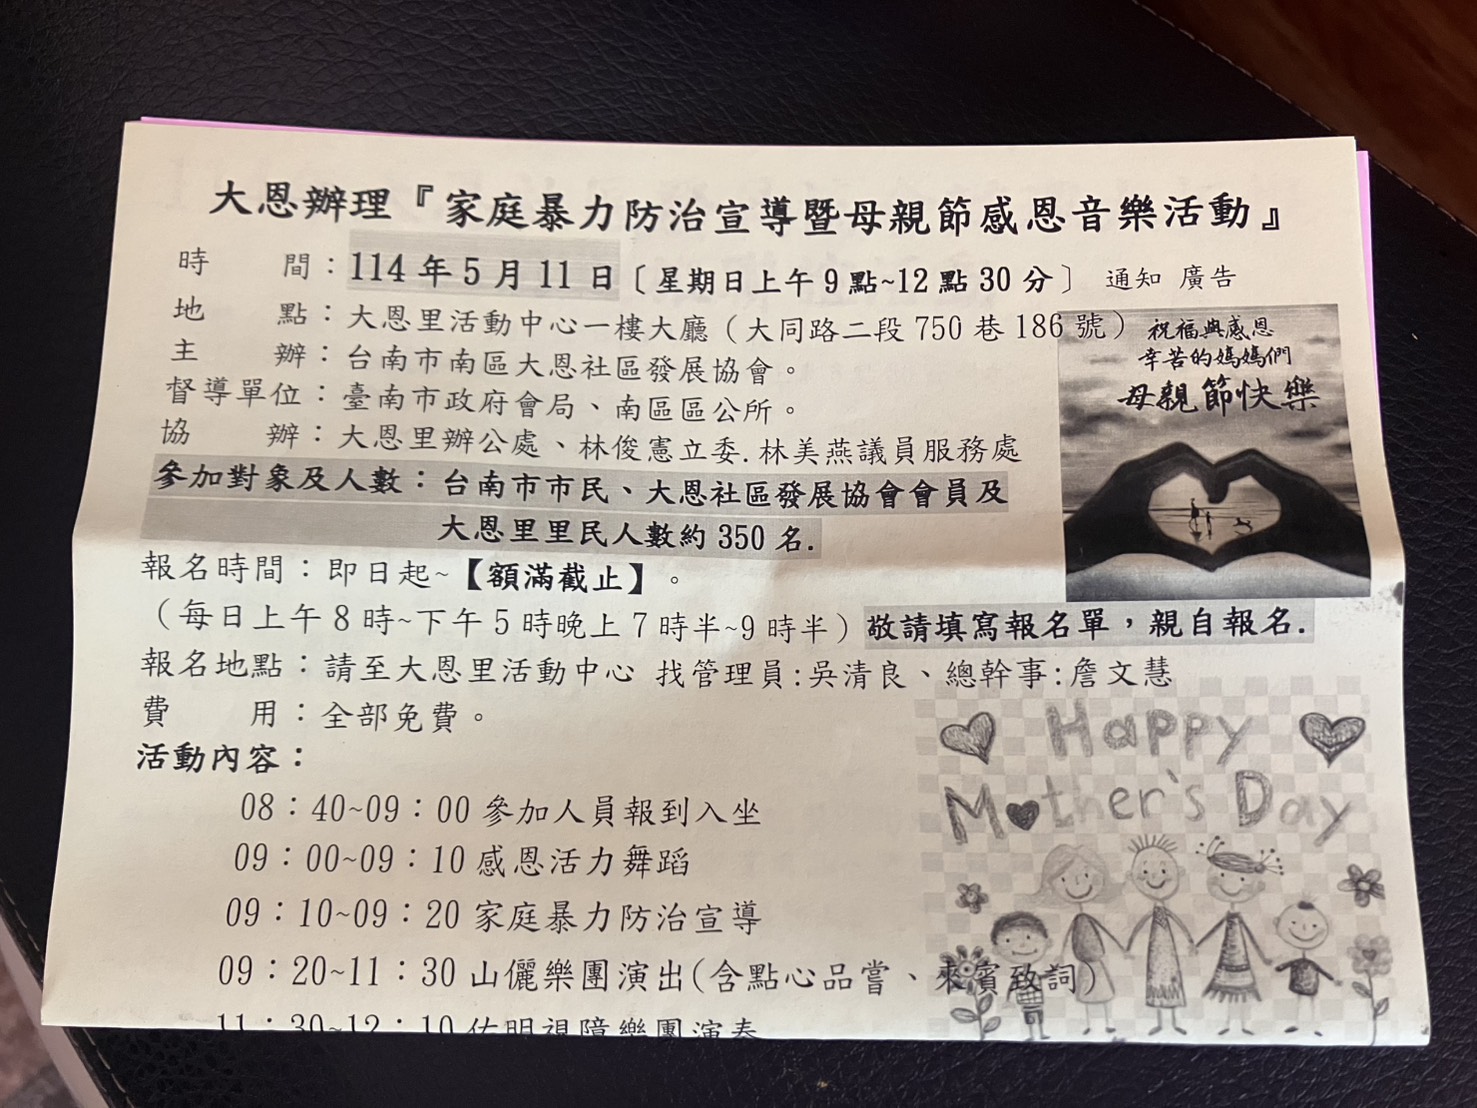 大恩辦理『家庭暴力防治宣導暨母親節感恩音樂活動』
時　　間：114 年 5 月 11 日〔星期日上午 9 點~12 點 30 分〕 通知 廣告
地　　點：大恩里活動中心一樓大廳（大同路二段 750 巷 186 號）
主　　辦：台南市南區大恩社區發展協會。
督導單位：臺南市政府會局、南區區公所。
協　　辦：大恩里辦公處、林俊憲立委.林美燕議員服務處
祝福與感恩
辛苦的媽媽們
母親節快樂
參加對象及人數：台南市市民、大恩社區發展協會會員及
大恩里里民人數約 350 名.
報名時間：即日起~【額滿截止】。
（每日上午 8 時~下午 5 時晚上 7 時半~9 時半）敬請填寫報名單，親自報名.
報名地點：請至大恩里活動中心 找管理員:吳清良、總幹事:詹文慧
費　　用：全部免費。
活動內容：
08：40~09：00 參加人員報到入坐
09：00~09：10 感恩活力舞蹈
09：10~09：20 家庭暴力防治宣導
09：20~11：30 山儷樂團演出(含點心品嘗、來賓致詞)
11：30~12：10 佑明視障樂團演奏
Happy
Mother's Day